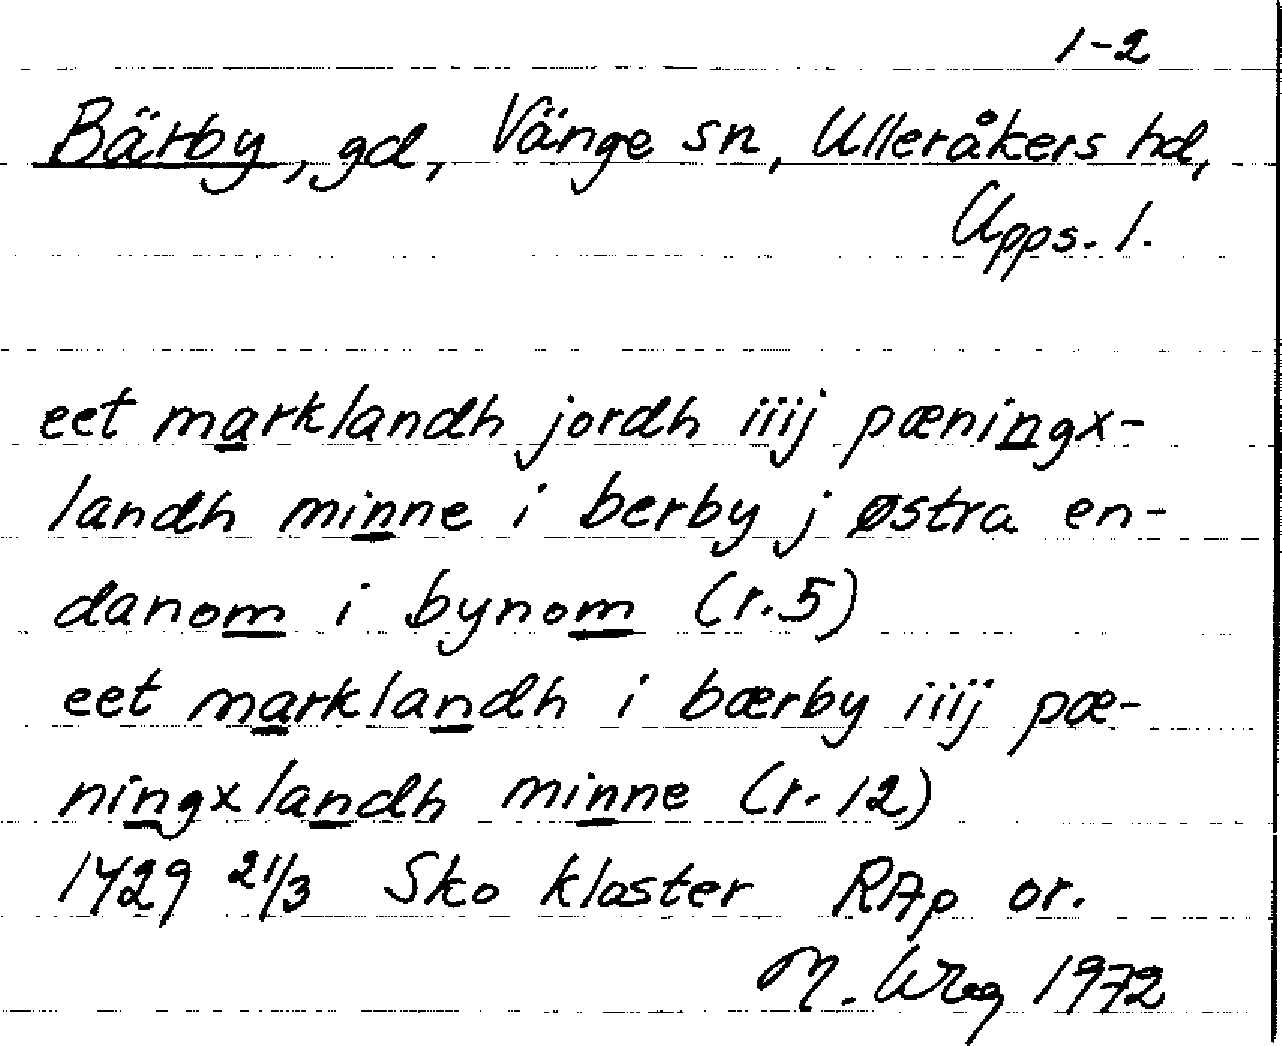 1-2
Bärby, gd, Vänge sn, Ulleråkers hd,
Upps. l.
eet marklandh jordh iiij pæningx-
landh minne i berby j østra en-
danom i bynom (r. 5)
eet marklandh i bærby iiij pæ-
ningxlandh minne (r. 12)
1429 21/3 Sko kloster RAp or.
M. Wreg 1972